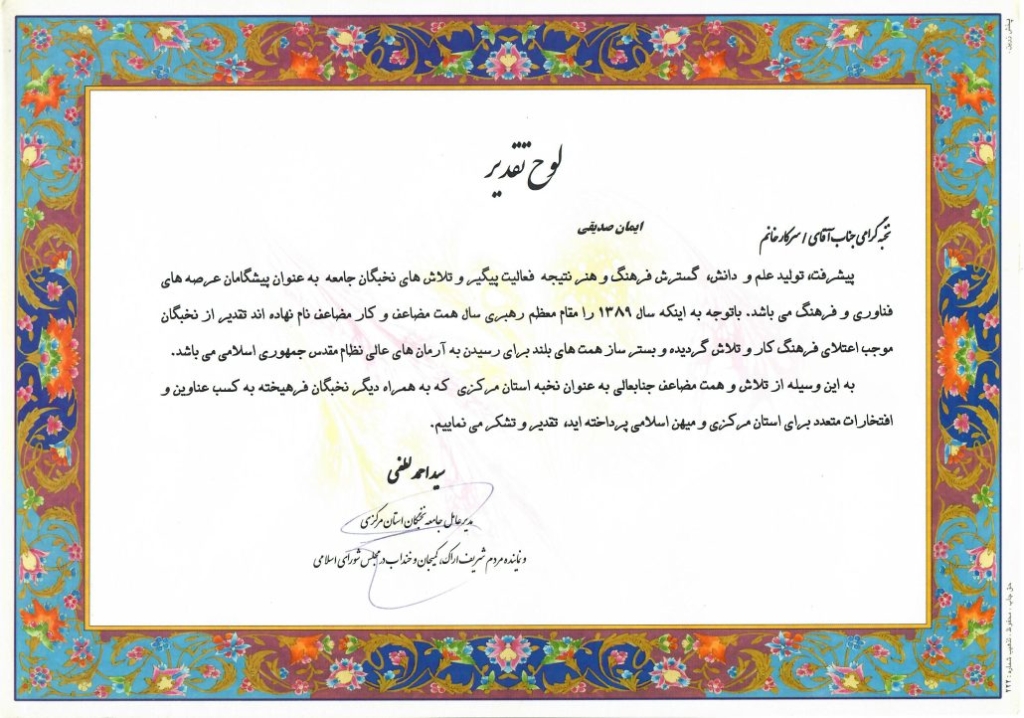 لوح تقدیر
نخبه گرامی جناب آقای / سرکار خانم ایمان صدیقی
پیشرفت، تولید علم و دانش، گسترش فرهنگ و هنر نتیجه فعالیت پیگیر و تلاش های نخبگان جامعه به عنوان پیشگامان عرصه های
فناوری و فرهنگ می باشد. باتوجه به اینکه سال ۱۳۸۹ را مقام معظم رهبری سال همت مضاعف و کار مضاعف نام نهاده اند تقدیر از نخبگان
موجب اعتلای فرهنگ کار و تلاش گردیده و بستر ساز همت های بلند برای رسیدن به آرمان های عالی نظام مقدس جمهوری اسلامی می باشد.
به این وسیله از تلاش و همت مضاعف جنابعالی به عنوان نخبه استان مرکزی که به همراه دیگر نخبگان فرهیخته به کسب عناوین و
افتخارات متعدد برای استان مرکزی و میهن اسلامی پرداخته اید، تقدیر و تشکر می نماییم.
سید احمد لطفی
مدیر عامل جامعه نخبگان استان مرکزی
و نماینده مردم شریف اراک، کمیجان و خنداب در مجلس شورای اسلامی
پخش زرین
حق چاپ محفوظ . تذهیب شماره : ۲۲۲